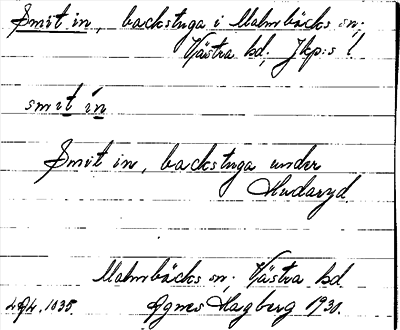 Smit in, backstuga i Malmbäcks sn;
Västra hd; Jkp:s l
smit in
Smit in, backstuga under
Hudaryd
Malmbäcks sn; Västra hd
Agnes Hagberg 1930.